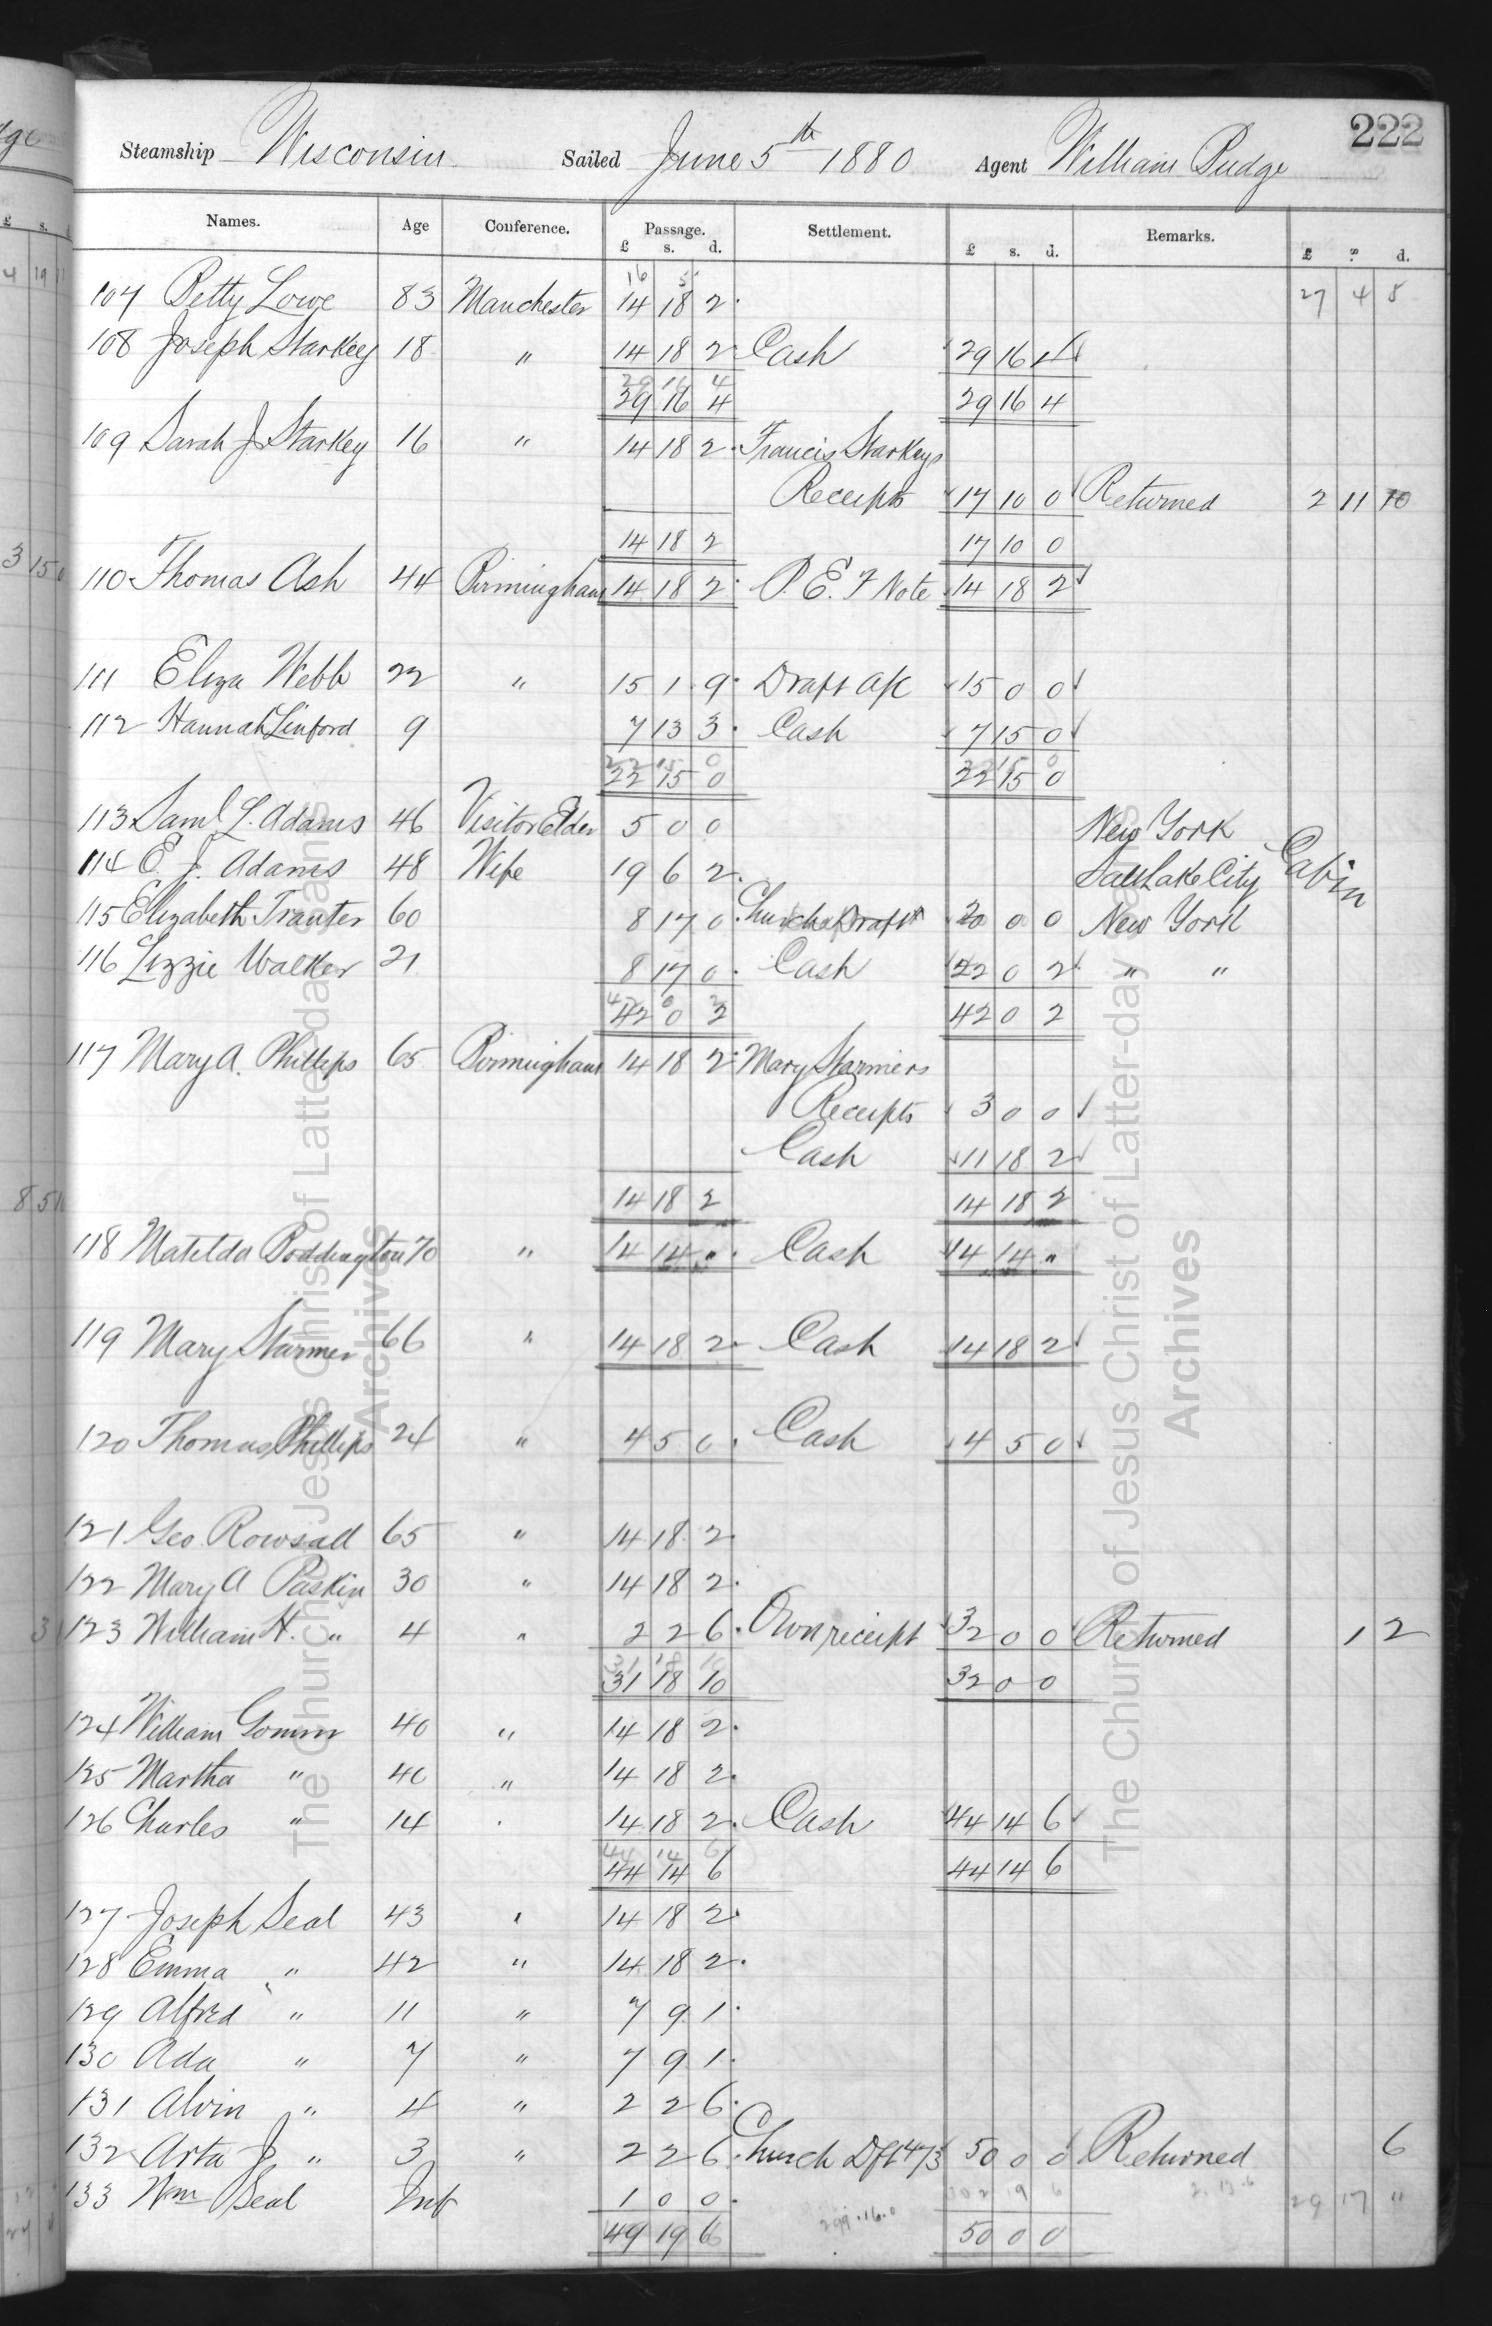 222
Steamship Wisconsin Sailed June 5th 1880 Agent William Budge
Names. Age Conference. Passage. Settlement. £ s. d. Remarks. £ s. d.
£ s. d.
16 5
107 Betty Lowe 83 Manchester 14 18 2 27 4 8
108 Joseph Starkey 18 " 14 18 2 Cash 29 16 4
29 16 4
29 16 4 29 16 4
109 Sarah J Starkey 16 " 14 18 2 Francis Starkeys
Receipts 17 10 0 Returned 2 11 10
14 18 2 17 10 0
110 Thomas Ash 44 Birmingham 14 18 2 P. E. F Note 14 18 2
111 Eliza Webb 22 " 15 1 9 Draft a/c 15 0 0
112 Hannah Linford 9 7 13 3 Cash 7 15 0
22 15 0 22 15 0
22 15 0 22 15 0
113 Saml L. Adams 46 Visitor Elder 5 0 0 New York
114 E. J. Adams 48 Wife 19 6 2 Salt Lake City Cabin
115 Elizabeth Tranter 60 8 17 0 Church Draft 20 0 0 New York
116 Lizzie Walker 21 8 17 0 Cash 22 0 2 " "
42 0 2
42 0 2 42 0 2
117 Mary A. Phillips 65 Birmingham 14 18 2 Mary Starmers
Receipts 3 0 0
Cash 11 18 2
14 18 2 14 18 2
118 Matilda Boddington 70 " 14 14 " Cash 14 14 "
119 Mary Starmer 66 " 14 18 2 Cash 14 18 2
120 Thomas Phillips 24 " 4 5 0 Cash 4 5 0
121 Geo. Rowsall 65 " 14 18 2
122 Mary A Paskin 30 " 14 18 2
123 William H. " 4 " 2 2 6 Own receipt 32 0 0 Returned 1 2
31 18 10
31 18 10 32 0 0
124 William Gomm 40 " 14 18 2
125 Martha " 40 " 14 18 2
126 Charles " 14 14 18 2 Cash 44 14 6
44 14 6
44 14 6 44 14 6
127 Joseph Seal 43 " 14 18 2
128 Emma " 42 " 14 18 2
129 Alfred " 11 " 7 9 1
130 Ada " 7 " 7 9 1
131 Alvin " 4 " 2 2 6
132 Arta J " 3 " 2 2 6 Church Dft 473 50 0 0 Returned 6
133 Wm Seal Inf 1 0 0 302 19 6 2. 13. 6 29 17 "
299.16.0
49 19 6 50 0 0
The Church of Jesus Christ of Latter-day Saints
Archives
The Church of Jesus Christ of Latter-day Saints
Archives